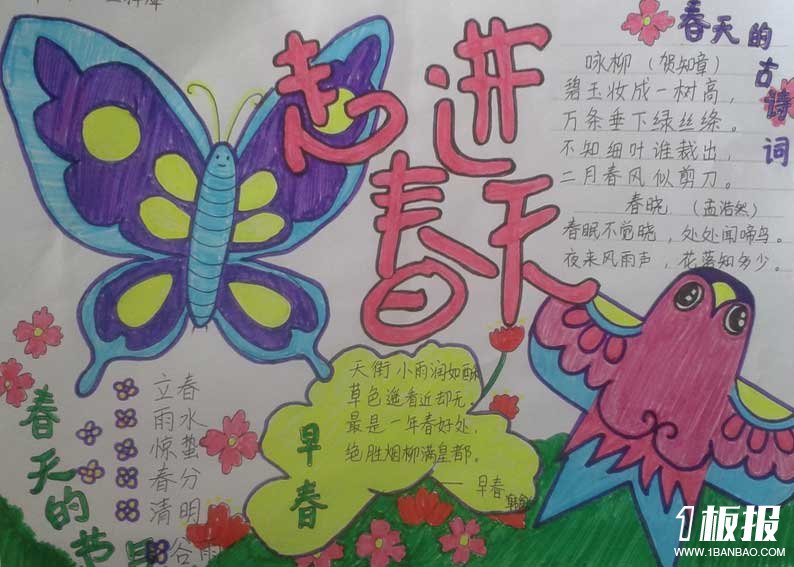 走进
春天
春天的古诗词
咏柳（贺知章）
碧玉妆成一树高，
万条垂下绿丝绦。
不知细叶谁裁出，
二月春风似剪刀。
春晓（孟浩然）
春眠不觉晓，处处闻啼鸟。
夜来风雨声，花落知多少。
早春
天街小雨润如酥
草色遥看近却无。
最是一年春好处，
绝胜烟柳满皇都。
——早春
春天的节
立春
雨水
惊蛰
春分
清明
谷雨
1板报
WWW.1BANBAO.COM